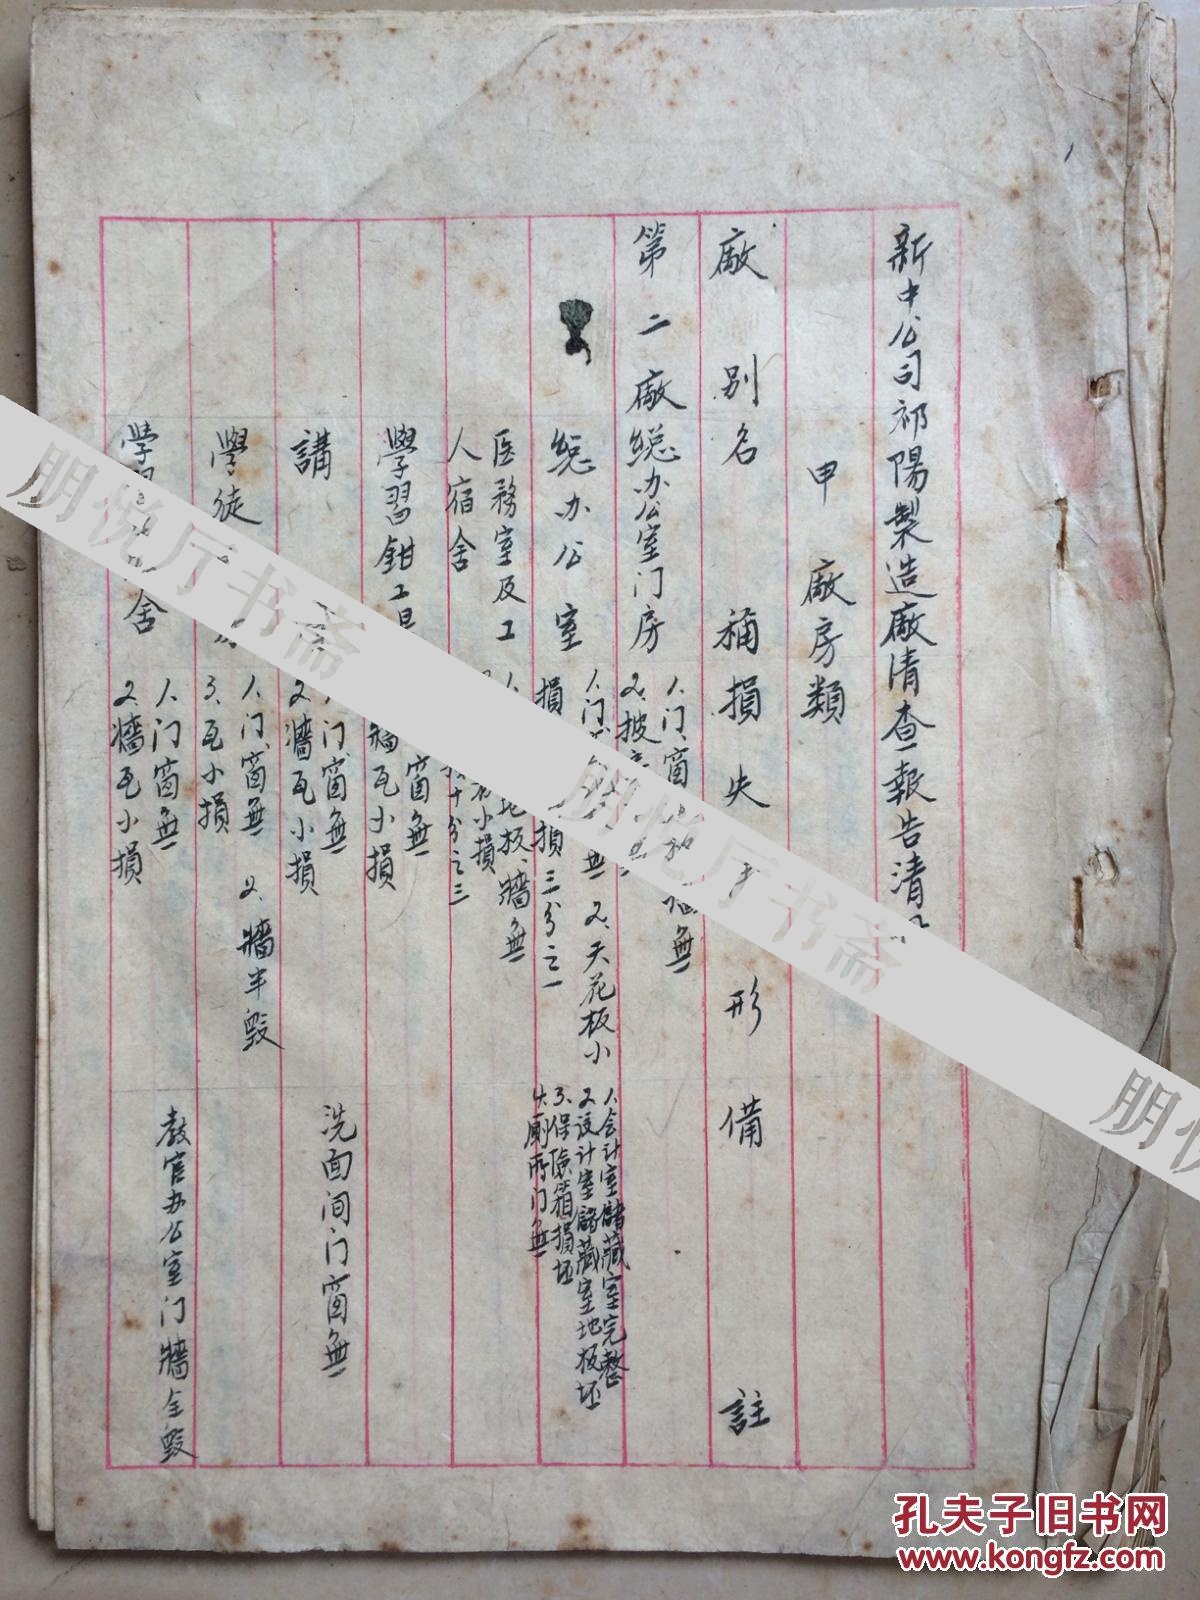 新中公司祁陽製造廠清查報告清
甲 廠房類
廠別 名稱 損失 形 備註
第二廠 總办公室门房
1、门、窗 無
2、披
總办公室
1、门 無 2、天花板小
損 損三分之一
1、会计室儲藏室完整
2、设计室儲藏室地板坯
3、保險箱損坯
4、廁所门無
医務室及工
人宿舍
地板、牆無
小損
十分之三
學習鉗工
窗無
牆瓦小損
講
门、窗無
2、牆瓦小損
洗面间门窗無
學徒
1、门、窗無 2、牆半毀
3、瓦小損
學 舍
1、门窗無
2、牆瓦小損
教官办公室门牆全毀
朋悦厅书斋
朋悦厅书斋
朋悦
孔夫子旧书网
www.kongfz.com